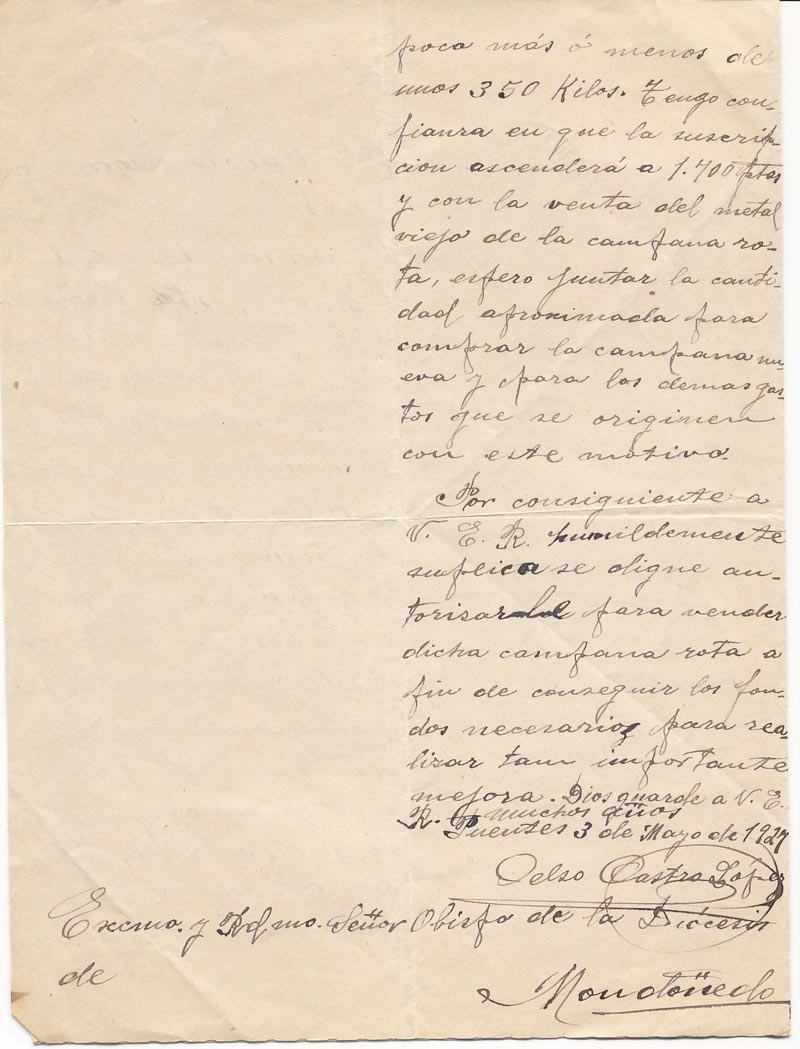 poca más ó menos de
unos 350 Kilos. Tengo con-
fianza en que la suscrip-
cion ascenderá a 1.700 ptas
y con la venta del metal
viejo de la campana ro-
ta, espero juntar la canti-
dad aproximada para
comprar la campana nu-
eva y para los demas gas-
tos que se originen
con este motivo.
Por consiguiente a
V. E. R. humildemente
suplica se digne au-
torisarle para vender
dicha campana rota a
fin de conseguir los fon-
dos necesarios para rea-
lizar tam importante
mejora. Dios guarde a V. E.
R. muchos años
Puentes 3 de Mayo de 1927
Celso Castro López
Excmo. y Rdmo. Señor Obispo de la Diócesis
de
Mondoñedo